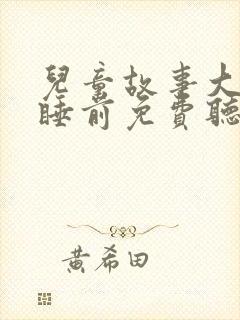 兒童故事大
睡前免費聽
黃希田